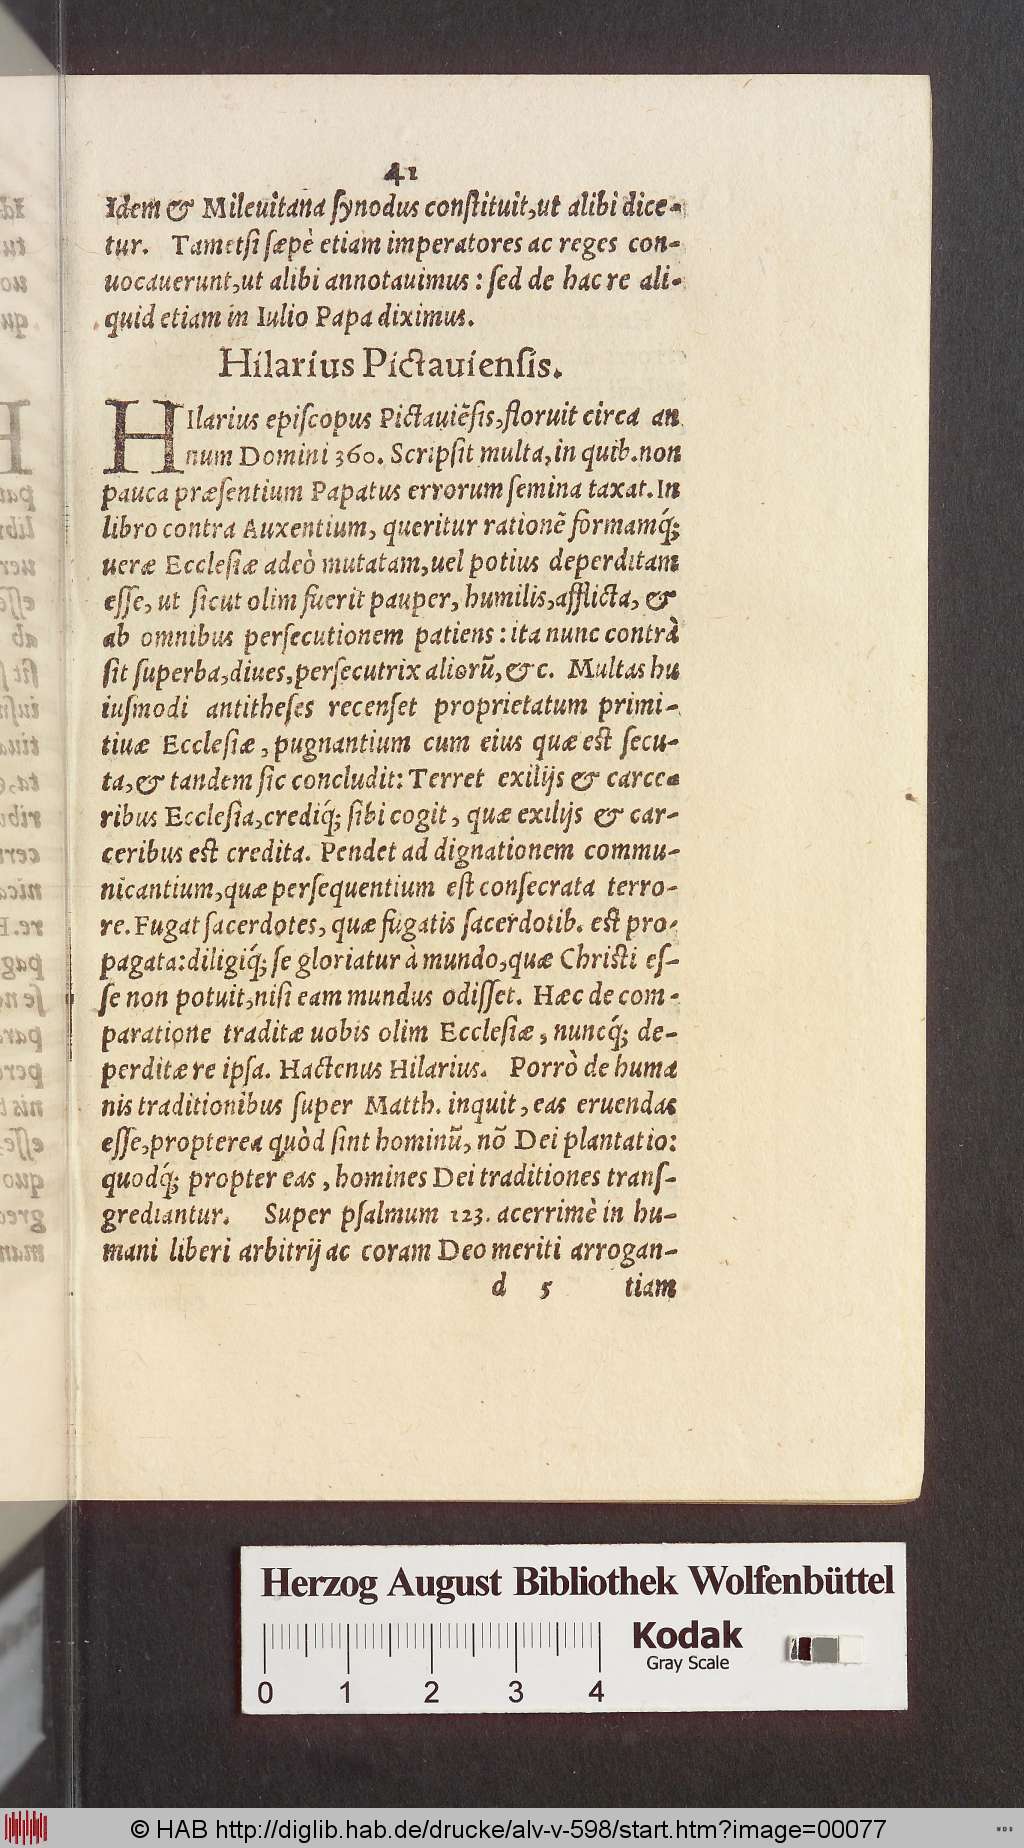 41
Idem & Mileuitana synodus constituit, ut alibi dice-
tur. Tametsi sæpè etiam imperatores ac reges con-
uocauerunt, ut alibi annotauimus: sed de hac re ali-
quid etiam in Iulio Papa diximus.
Hilarius Pictauiensis.
HIlarius episcopus Pictauiẽsis, floruit circa an
num Domini 360. Scripsit multa, in quib. non
pauca præsentium Papatus errorum semina taxat. In
libro contra Auxentium, queritur rationẽ formamq́;
ueræ Ecclesiæ adeò mutatam, uel potius deperditam
esse, ut sicut olim fuerit pauper, humilis, afflicta, &
ab omnibus persecutionem patiens: ita nunc contrà
sit superba, diues, persecutrix aliorũ, &c. Multas hu
iusmodi antitheses recenset proprietatum primi-
tiuæ Ecclesiæ, pugnantium cum eius quæ est secu-
ta, & tandem sic concludit: Terret exilijs & carce-
ribus Ecclesia, crediq́; sibi cogit, quæ exilijs & car-
ceribus est credita. Pendet ad dignationem commu-
nicantium, quæ persequentium est consecrata terro-
re. Fugat sacerdotes, quæ fugatis sacerdotib. est pro-
pagata: diligiq́; se gloriatur à mundo, quæ Christi es-
se non potuit, nisi eam mundus odisset. Hæc de com-
paratione traditæ uobis olim Ecclesiæ, nuncq́; de-
perditæ re ipsa. Hactenus Hilarius. Porrò de huma
nis traditionibus super Matth. inquit, eas eruendas
esse, propterea quòd sint hominũ, nõ Dei plantatio:
quodq́; propter eas, homines Dei traditiones trans-
grediantur. Super psalmum 123. acerrimè in hu-
mani liberi arbitrij ac coram Deo meriti arrogan-
d 5 tiam
Herzog August Bibliothek Wolfenbüttel
Kodak
Gray Scale
0 1 2 3 4
© HAB http://diglib.hab.de/drucke/alv-v-598/start.htm?image=00077